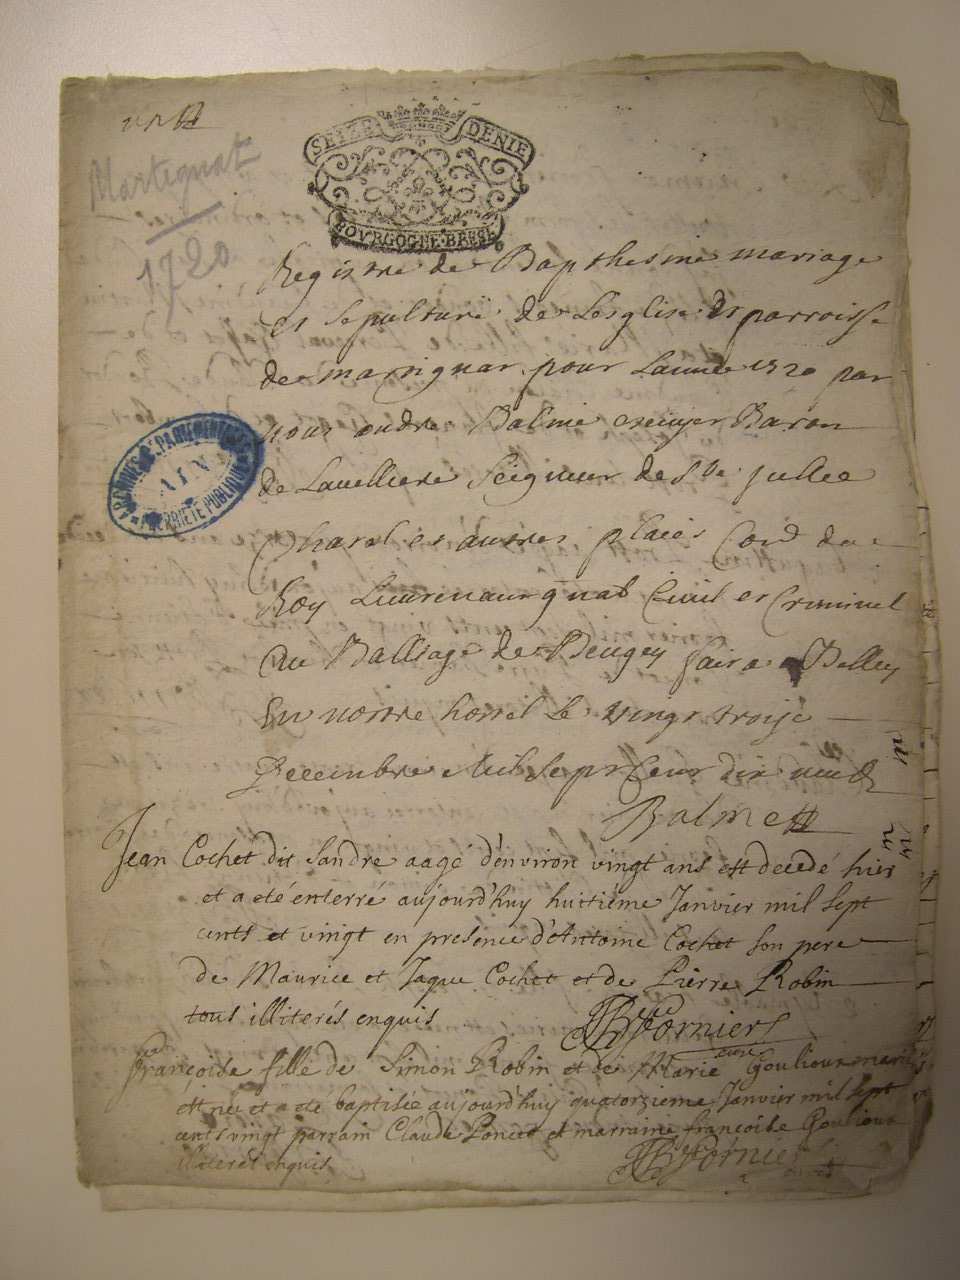 Martignat
1720
SEIZE DENIE
BOVRGOGNE·BRESSE
Registre de Bapthesme mariage
et sepulture de Lesglise et parroisse
de martignat pour Lannée 1720 par
nous andre Balme escuyer Baron
de Seigneur de Ste Jullee
et autres places Con.er du
Roy Lieutenant gnal Civil et Criminel
Au Balliage de Beugey fait a Belley
En nostre hostel le vingt troise
Decembre Mil sept Cent dix neuf
Balme
ARCHIVES DÉPARTEMENTALES
AIN
PROPRIÉTÉ PUBLIQUE
Jean Cochet dit Sandre aagé d'environ vingt ans est decedé hier
et a eté enterré aujourd'huy huitiéme Janvier mil sept
cents et vingt en presence d'Antoine Cochet son pere
de Maurice et Jaque Cochet et de Pierre Robin
tous illiterés enquis Fornier
curé
françoise fille de Simon Robin et de Marie Goulioux mariés
est née et a eté baptisée aujourd'huy quatorzieme Janvier mil sept
cents vingt parrain Claude Poncet et marraine françoise Goulioux
illiterés enquis Fornier
curé